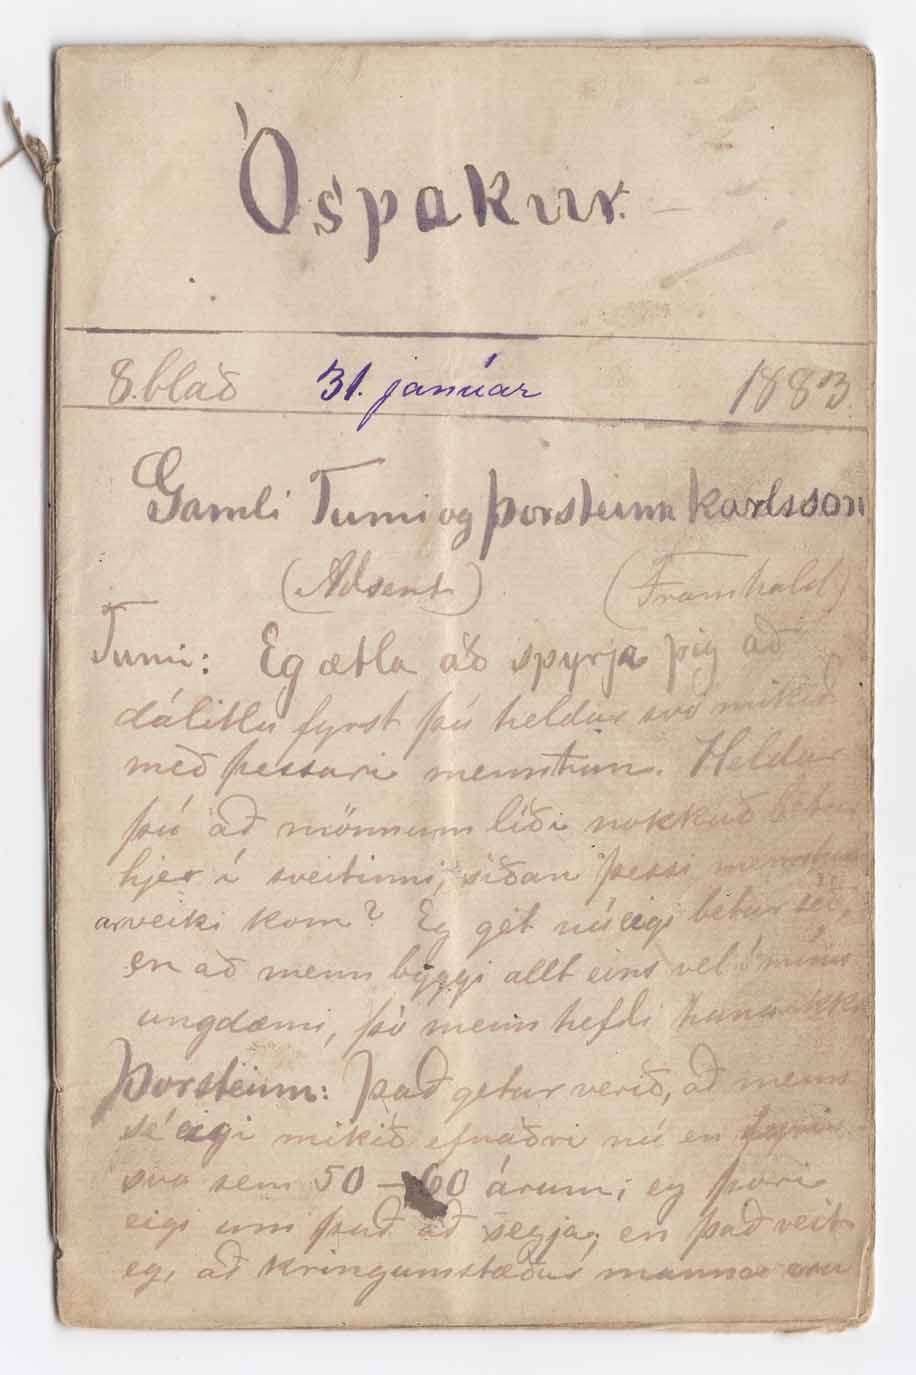 Óspakur.
8. blað 31. janúar 1883.
Gamli Tumi og Þorsteinn Karlsson
(Aðsent) (Framhald)
Tumi: Eg ætla að spyrja þig að
dálitlu fyrst þú heldur svo mikið
með þessari menntun. Heldur
þú að mönnum líði nokkuð betur
hjer í sveitinni, síðan þessi menntun
arveiki kom? Eg get nú eigi betur séð,
en að menn byggi allt eins vel í mínu
ungdæmi, þó menn hefði hana ekki
Þorsteinn: Það getur verið, að menn
sé eigi mikið efnaðri nú en fyrir
svo sem 50 – 60 árum; eg þori
eigi um það að segja; en það veit
eg, að kringumstæður manna eru